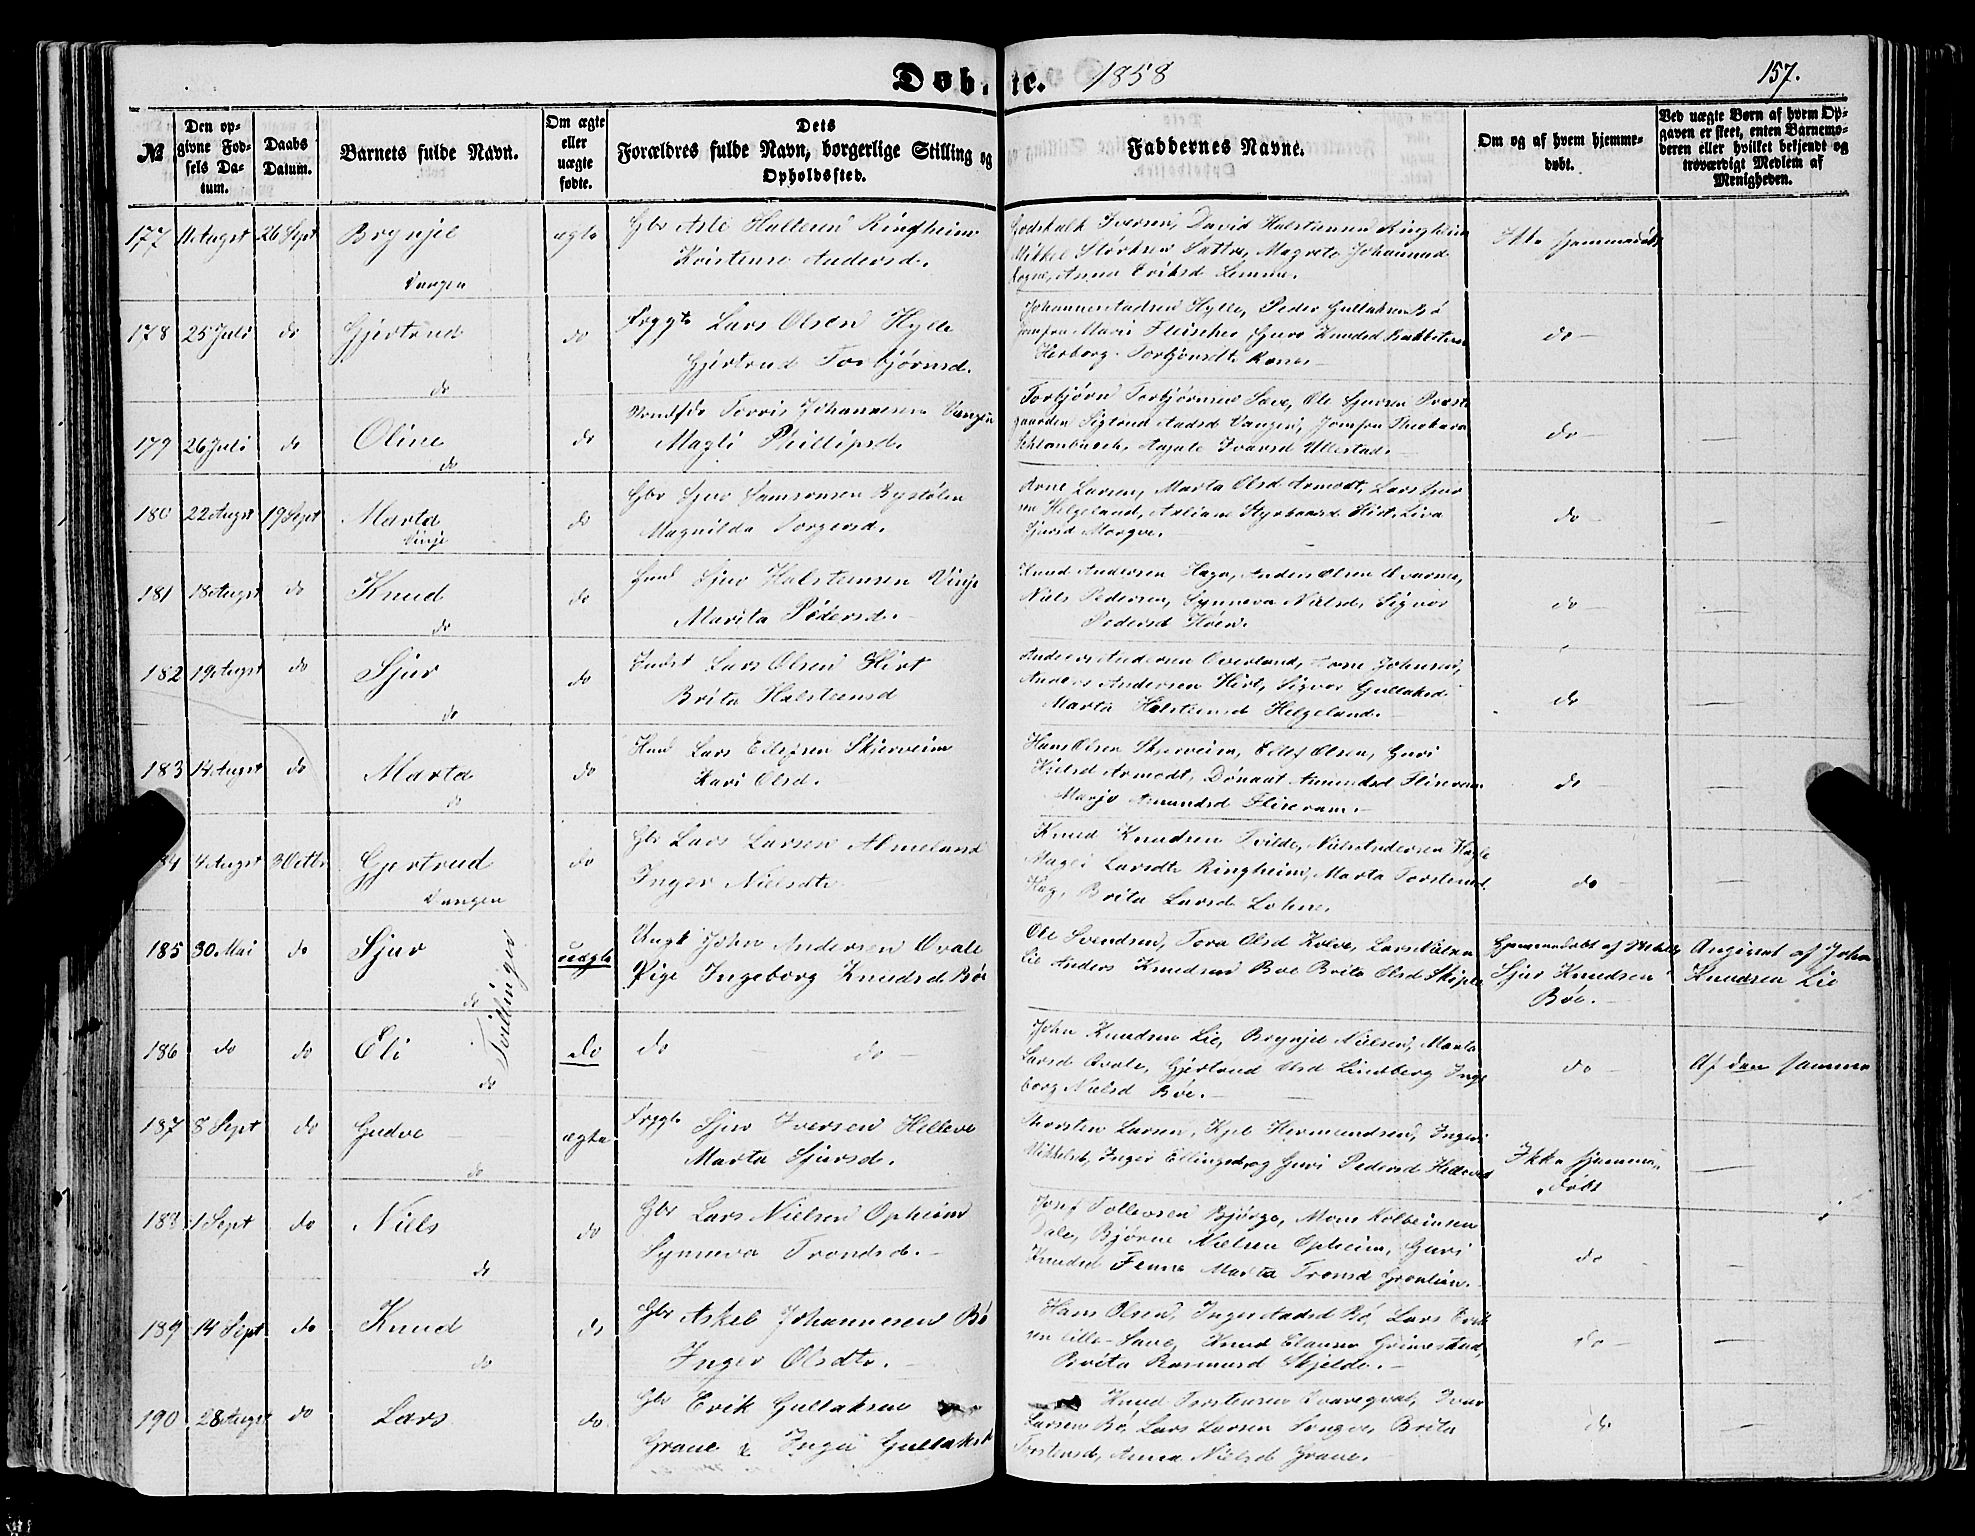 Døbte. 1858
157.
№
Den opgivne Fødsels Datum.
Daabs Datum.
Barnets fulde Navn.
Om ægte eller uægte fødte.
Dets Forældres fulde Navn, borgerlige Stilling og Opholdssted.
Faddernes Navne.
Om og af hvem hjemmedøbt.
Ved uægte Børn af hvem Opgaven er skeet, enten Barnemoderen eller hvilket bekjendt og troværdigt Medlem af Menigheden.
177 11 Augst 26 Sept Brynjel ægte Gbr Asle Ringheim
Vangen Kristense Andersd.
Godskalk Iversen, David Halsteensen Ringheim
Mikkel Størksen Sættre, Magrete Johannesd
Anna Eriksd Lemme.
178 25 Juli do Gjertrud do Lars Olsen Hylle
do Gjertrud Torbjørnsd.
Hylle, Peder Gullaksen Bø
Jomfru Mari Fleischer
Herborg Torbjørnsdt. do
179 26 Juli do Oline do Torris Johannesen Vangen
do Magli Phillipsd.
Torbjørn Torbjørnsen Ole Sjursen Præste
gaarden Sigtrud Vangen, Jomfru
Ivarsd Ullestad. do —
180 22 Augst 19 Sept Marta do Gbr Sjur Samsonsen Bystølen
Vinje Magnilda Torgersd.
Arne Larsen, Marta Olsd Armodt, Lars Sjur
sen Helgeland,
Sjursd Mørqve. do —
181 18 Augst do Knud do Sjur Halsteensen Vinje
do Marita Pedersd.
Knud Andersen Haga, Anders Olsen
Niels Pedersen, Synneva Nielsd, Sigvor
Pedersd do —
182 19 Augst do Sjur do Lars Olsen Hirt
do Brita Halsteensd
Anders Andersen Overland, Arne Johnsen,
Anders Andersen Hirt, Sigvor Gullaksd
Marta Halsteensd Helgeland. do —
183 14 Augst do Marta do Lars Eilefsen Skjerveim
do Kari Olsd.
Hans Olsen Skjerveim, Eilef Olsen, Guri
Armodt, Amundsd
Marjo Amundsd do —
184 4 Augst 3 Octbr Gjertrud do Gbr Lars Larsen Almeland
Vangen Inger Nielsdtr
Knud Knudsen Tvilde, Niels Andersen
Magli Larsdtr Ringheim, Marta Torstensd
Brita Larsd Lohne. do —
185 30 Mai do Sjur Tvillinger uægte Ungk John Andersen Qvale
do Pige Ingeborg Knudsd Bøe
Ole Svendsen, Tora Olsd Kolve, Lars
Lie Anders Knudsen Bøe Brita Olsd
Hjemmedøbt af
Sjur Knudsen
Bøe.
Angivet af John
Knudsen Lie
186 do do Eli do do do —
do
John Knudsen Lie, Brynjel Nielsen, Marta
Larsd Qvale, Gjertrud Olsd Lindberg Inge
borg Nielsd Bøe. do Af den samme
187 8 Sept do Gudve ægte Sjur Iversen Helleve
do Marta Sjursd.
Thorsten Larsen, Kjel Hermundsen, Inger
Mikkelsd, Inger Ellingsd og Guri Pedersd
Ikke hjemme
døbt —
188 1 Sept do Niels do Gbr Lars Nielsen Opheim
do Synneva Trondsd.
Josef Tollevsen Bjørge, Mons Kolbeinsen
Dale, Bjørne Nielsen Opheim, Guri
Knudsd Fenne Marta Tronsd Grønlien. do —
189 14 Sept do Knud do Gbr Askel Johannesen Bø
do Inger Olsdtr.
Hans Olsen, Inger Bø, Lars Erik
sen Lille-Save, Knud Clausen Grimestad,
Brita Rasmusd Skjelde. do —
190 28 Augst do Lars do Gbr Erik Gullaksen
Graue & Inga Gullaksd
Knud Torstensen Ivar
Larsen Bø, Lars Larsen Brita
Torstensd, Anna Nielsd Graue. do —